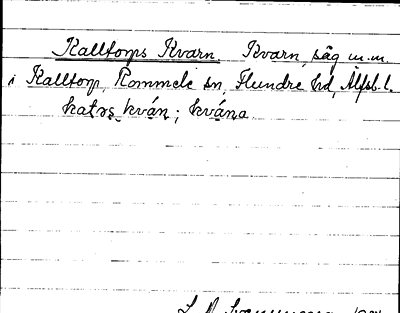 Kalltorps Kvarn. Kvarn, såg m.m.
i Kalltorp, Rommele sn, Flundre hd, Älfsb. l.
kván; kvána